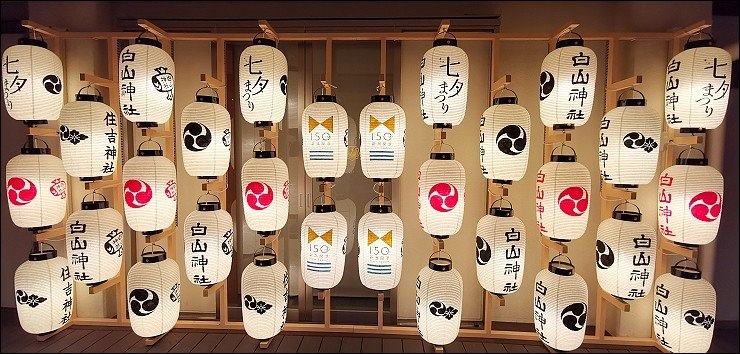 七夕まつり
白山神社
七夕まつり
七夕まつり
白山神社
七夕まつり
住吉神社
150
150
白山神社
白山神社
白山神社
白山神社
150
150
白山神社
白山神社
住吉神社
白山神社
白山神社